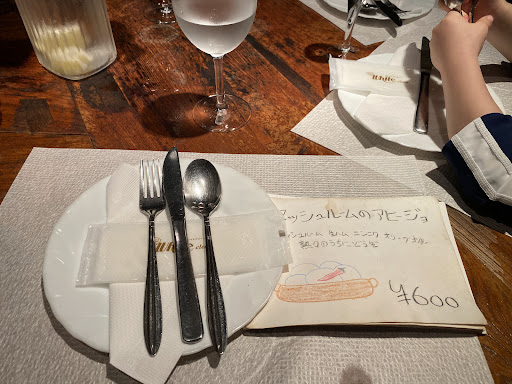 ッシュルームのアヒージョ
ッシュルーム 生ハム ニンニク オリーブオイル
熱々のうちにどうぞ
¥600
white
white